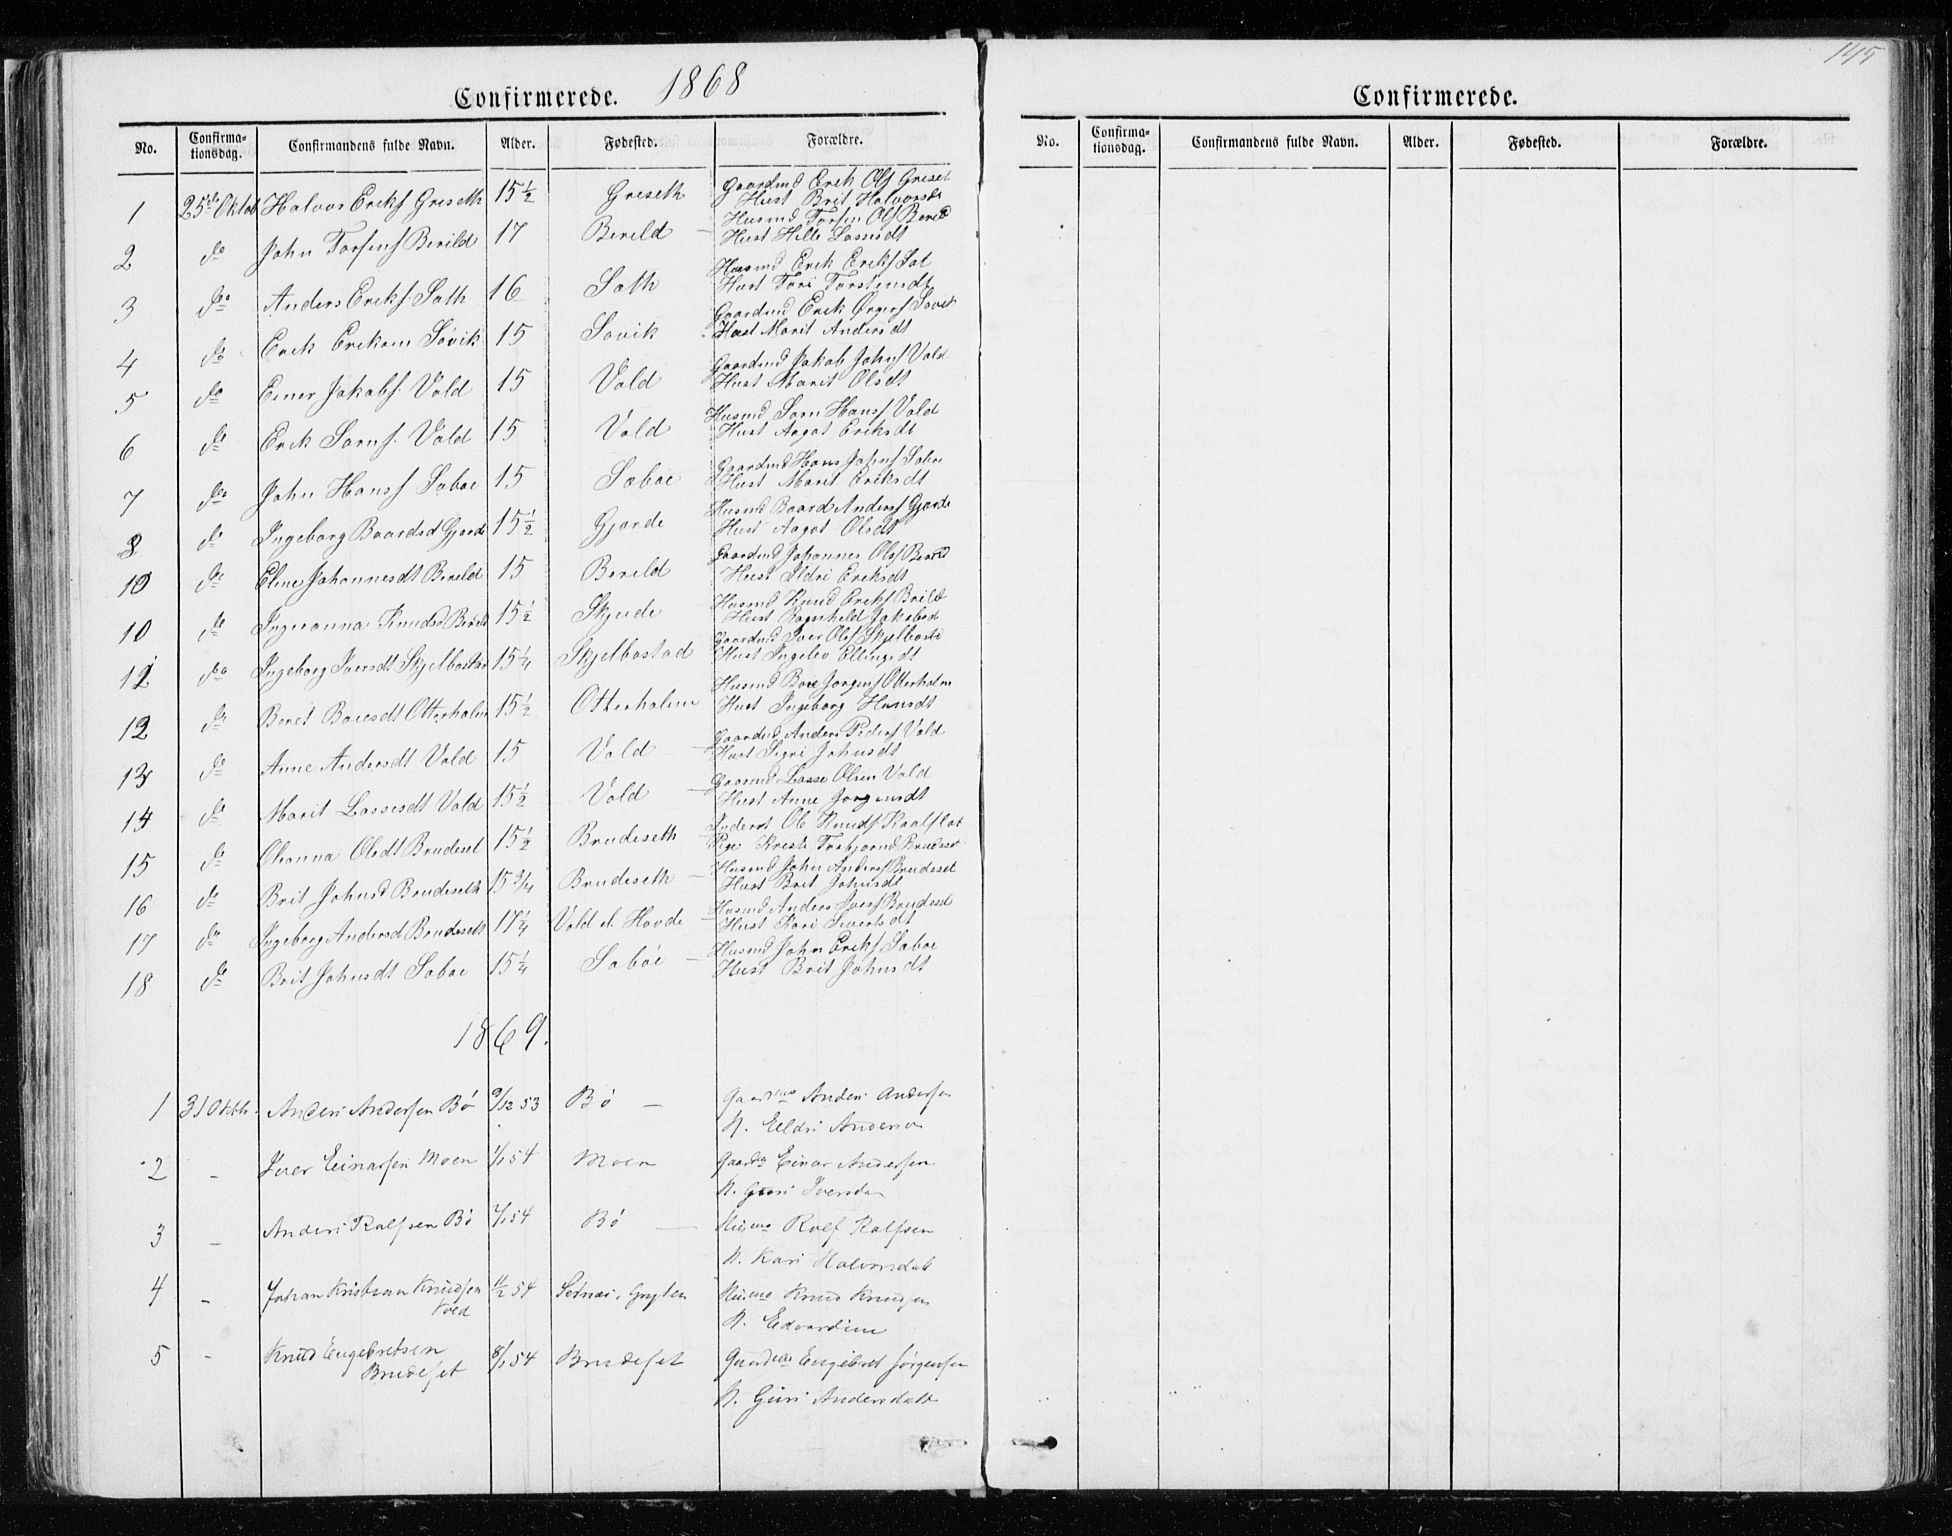 145
Confirmerede. 1868
No. Confirmationsdag. Confirmandens fulde Navn. Alder. Fødested. Forældre.
1 25de Oktob Halvor Eriks Griseth 15½ Griseth Gaardmd Erik Ols Griset
Hust Brit Halvorsdt
2 do John Torsens Berild 17 Berild Husmd Torsen Ols Berild
Hust Lassesdt
3 do Anders Eriks: Sath 16 Sath Husmd Erik Eriks Sat
Hust Tori Torstensdt
4 do Erik Eriksen Sövik 15 Sövik Gaardmd Erik
Hust Marit Andersdt
5 do Einer Jakobs: Vold 15 Vold Gaardmd Jakob Johns Vold
Hust Marit Olsdt
6 do Erik Sorns: Vold 15 Vold Husmd Sorn Hans Vold
Hust Aagot Eriksdt
7 do John Hans Saboe 15 Saboe Gaardmd Hans Johns Saboe
Hust Marit Eriksdt
8 do Ingeborg Baardsd Gjorde 15½ Gjorde Husmd Baard Anders Gjorde
Hust Aagot Olsdt
10 do Eline Johannesdt Berild 15 Berild Gaardmd Johannes Ols Berild
Hust Ildri Eriksdt
10 do Ingeranna Knudsd Berild 15½ Skjeide Husmd Knud Eriks Brild
Hust Ragnhild Jakobsdt
12 do Ingeborg Iversdt Skjelbostad 15¼ Skjelbostad Gaardmd Iver Ols Skjelbostd
Hust Ingelev Ellingsdt
12 do Berit Boresdt Otterholm 15½ Otterholm Husmd Bore Jorgens Otterholm
Hust Ingeborg Hansdt
13 do Anne Andersdt Vold 15 Vold Gaardmd Anders Peders Vold
Hust Sigri Johnsdt
14 do Marit Lassesdt Vold 15½ Vold Gaarmd Lasse Olsen Vold
Hust Anne Jorgensdt
15 do Olianna Olsdt Brudeset 15½ Brudeseth Ole Knuds: Kaalflot
Pige Kristi Torbjornd Brudeset
16 do Brit Johnsd Brudeseth 15¾ Brudeseth Husmd John Anders Brudeset
Hust Brit Johnsdt
17 do Ingeborg Andersd Brudeseth 17¼ Vold el. Hovde Husmd Anders Ivers Brudesd
Hust Kari Siverts dt
18 do Brit Johnsdt Saboe 15¼ Saboe Husmd John Eriks Saboe
Hust Brit Johnsdt
1869.
1 31 Oktbr. Anders Andersen Bö 9/12 53 Bö Anders Andersen
H. Elldri Andersd
2 - Iver Einarsen Moen 1/1 54 Moen Gaardm Einar Andersen
H. Guri Iversda
3 - Anders Ralfsen Bö 7/1 54 Bö Husma Rolf Ralfsen
H. Kari Halvorsdatt
4 - Johan Kristian Knudsen 11/2 54 Setnæs, Grytten Husma Knud Knudsen
Vold
H. Edvardine
5 - Knud Engebretsen 8/1 54 Brudeset Gaardma Engebret Jörgensen
Brudeset
H. Guri Andersdatt
Confirmerede.
No. Confirmationsdag. Confirmandens fulde Navn. Alder. Fødested. Forældre.